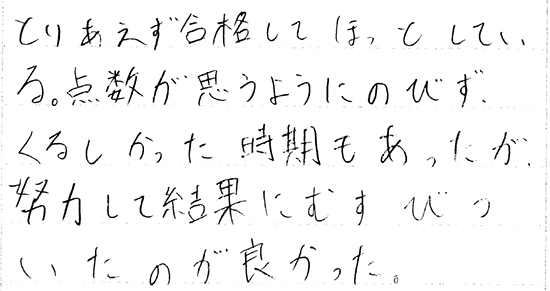 とりあえず合格してほっとしてい
る。点数が思うようにのびず、
くるしかった時期もあったが、
努力して結果にむすびつ
いたのが良かった。